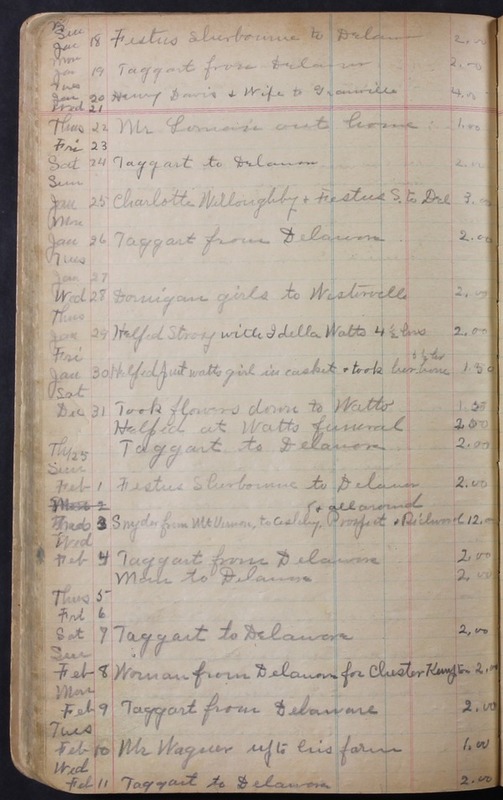 Sun
Jan 18 Festus Sherbourne to Delawn 2.00
Mon
Jan 19 Taggart from Delawn 2.00
Tues
Jan 20 Henry Davis & Wife to Granville 4.00
Wed 21
Thus 22 Mr out home 1.00
Fri 23
Sat 24 Taggart to Delawon 2.00
Sun
Jan 25 Charlotte Willoughby & Festus S. to Del 3.00
Mon
Jan 26 Taggart from Delawon 2.00
Tues
Jan 27
Wed 28 Donigan girls to Westerville 2.00
Thus
Jan 29 Helped Strosy with Idella Watts 4½ hrs 2.00
Fri
Jan 30 Helped put watts girl in casket & took her home hrs 1.50
Sat
Dec 31 Took flowers down to Watts 1.50
Helped at Watts funeral 2.00
Taggart to Delawon 2.00
Sun
Feb 1 Festus Sherbourne to Delawn 2.00
Mon 2
& all around
Tues 3 Snyder from Mt Vernon, to Ashley, Prospect & Richwood 12.00
Wed
Feb 4 Taggart from Delawon 2.00
Man to Delawon 2.00
Thus 5
Fri 6
Sat 7 Taggart to Delaware 2.00
Sun
Feb 8 Woman from Delawon for Chester 2.00
Mon
Feb 9 Taggart from Delaware 2.00
Tues
Feb 10 Mr Wagner up to his farm 1.00
Wed
Feb 11 Taggart to Delawon 2.00